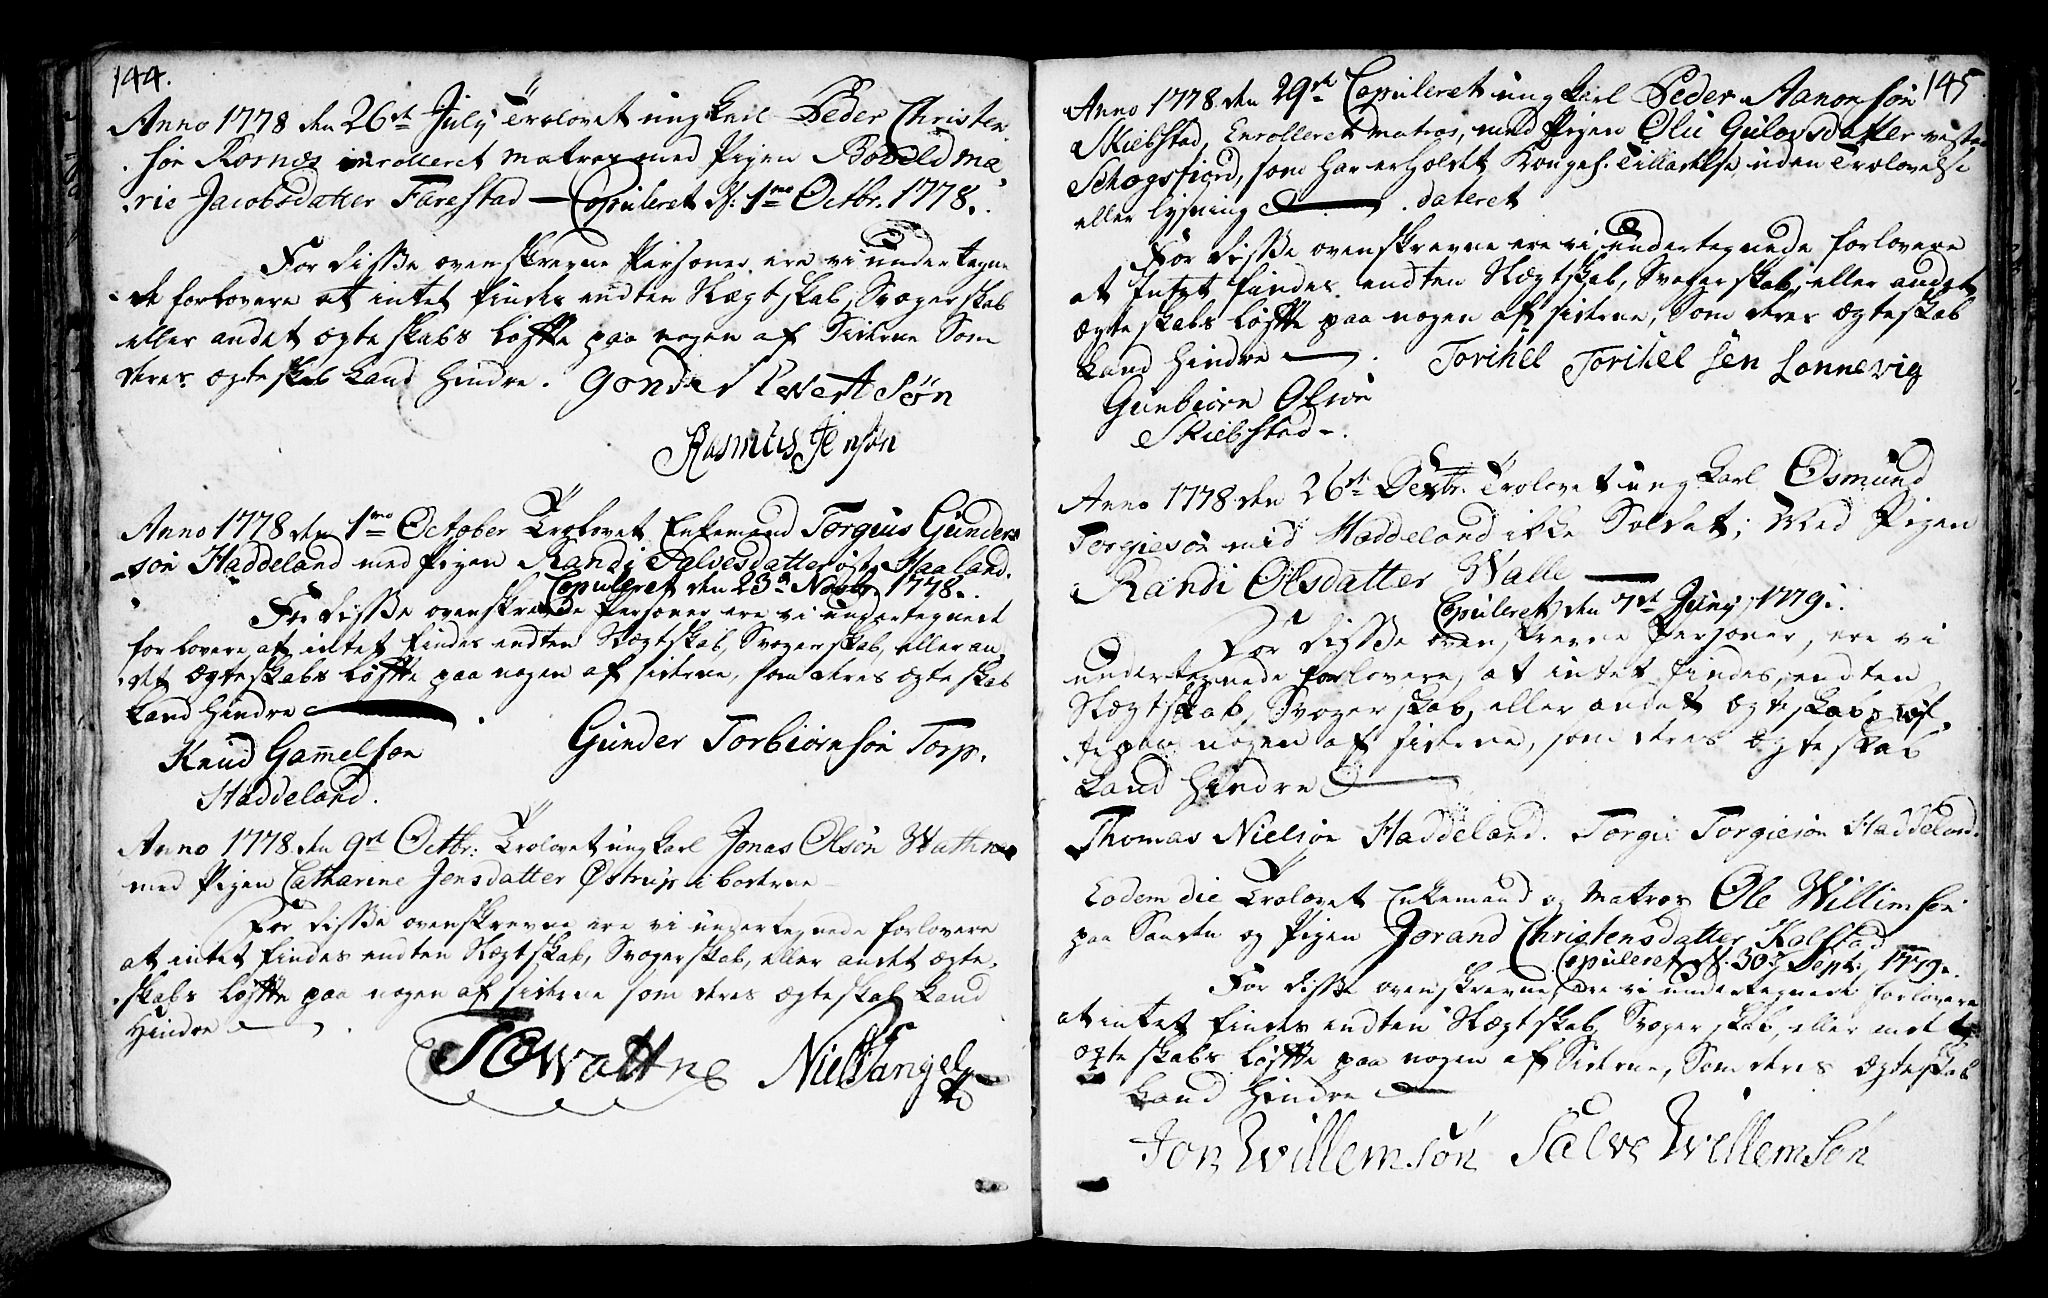 144.
Anno 1778 den 26de July Trolovet ung Karl Peder Christen
søn Rosnes inrolleret matros med Pigen Bodeld Ma
rie Jacobsdatter Farestad — Copuleret d: 1mo Octbr. 1778.
For disse ovenskrevne Personer ere vi undertegne
de forlovere at intet findes endten Slægtskab, Svogerskab
eller andet ægteskabs løfte paa nogen af Siderne Som
deres ægteskab kand hindre. Gonder Evertsøn
Rasmus Jensøn
Anno 1778 den 1mo October Trolovet Enkemand Torgius Gunders
søn Haddeland med Pigen Randi Salvesdatter øste Haaland.
Copuleret den 23de Novbr 1778.
For disse ovenskrevne Personer ere vi undertegnede
forlovere at intet findes endten Slægtskab, Svogerskab, eller an
det ægteskabs løfte paa nogen af siderne, som deres ægteskab
kand hindre
Knud Gamelsøn Gunder Torbiørnsøn Torp.
Haddeland.
Anno 1778 den 9de Octbr: Trolovet ung Karl Jonas Olsøn Wathne
med Pigen Catharine Jensdatter Østrup i bortene
For disse ovenskrevne ere vi undertegnede forlovere
at intet findes endten Slægtskab, Svogerskab, eller andet ægte
skabs løfte paa nogen af siderne som deres ægteskab kand
hindre
Wattne Niels Tangel
145
Anno 1778 den 29de Copuleret ung Karl Peder Aanonsøn
Skiebstad, Enrolleret matros, med Pigen Oliv Gulovsdatter vestre
Schogsfiord, som har erholdet Kongel: Tilladelse uden Trolovelse
eller lysning dateret
For disse ovenskrevne ere vi undertegnede forlovere
at Intet findes endten Slægtskab, Svogerskab, eller andet
ægteskabs løfte paa nogen af siderne, Som deres ægteskab
kand hindre Torikel Torikelsen Lonnevig
Gunbiørn Olsøn
Skiebstad
Anno 1778 den 26de Decbr. Trolovet ung Karl Osmund
Torgiesøn mid Haddeland ikke Soldat; Med Pigen
Randi Olsdatter Walle
Copuleret den 7de Juny 1779.
For disse ovenskrevne Personer, ere vi
undertegnede forlovere, at intet findes, endten
Slægtskab, Svogerskab, eller andet ægteskabs løf
te paa nogen af siderne, som deres ægteskab
kand hindre
Thomas Nielsøn Haddeland. Torgie Torgiesøn Haddeland.
Eodem die Trolovet Enkemand og Matros Ole Willimsøn
paa Sanden og Pigen Jorand Christensdatter Kalstad
Copuleret d: 30de Sept: 1779.
For disse ovenskrevne, ere vi undertegnede forlovere
at intet findes endten Slægtskab, Svogerskab, eller andet
ægteskabs løfte paa nogen af Siderne, Som deres ægteskab
kand hindre
Jon Willemsøn Salve Willemsøn